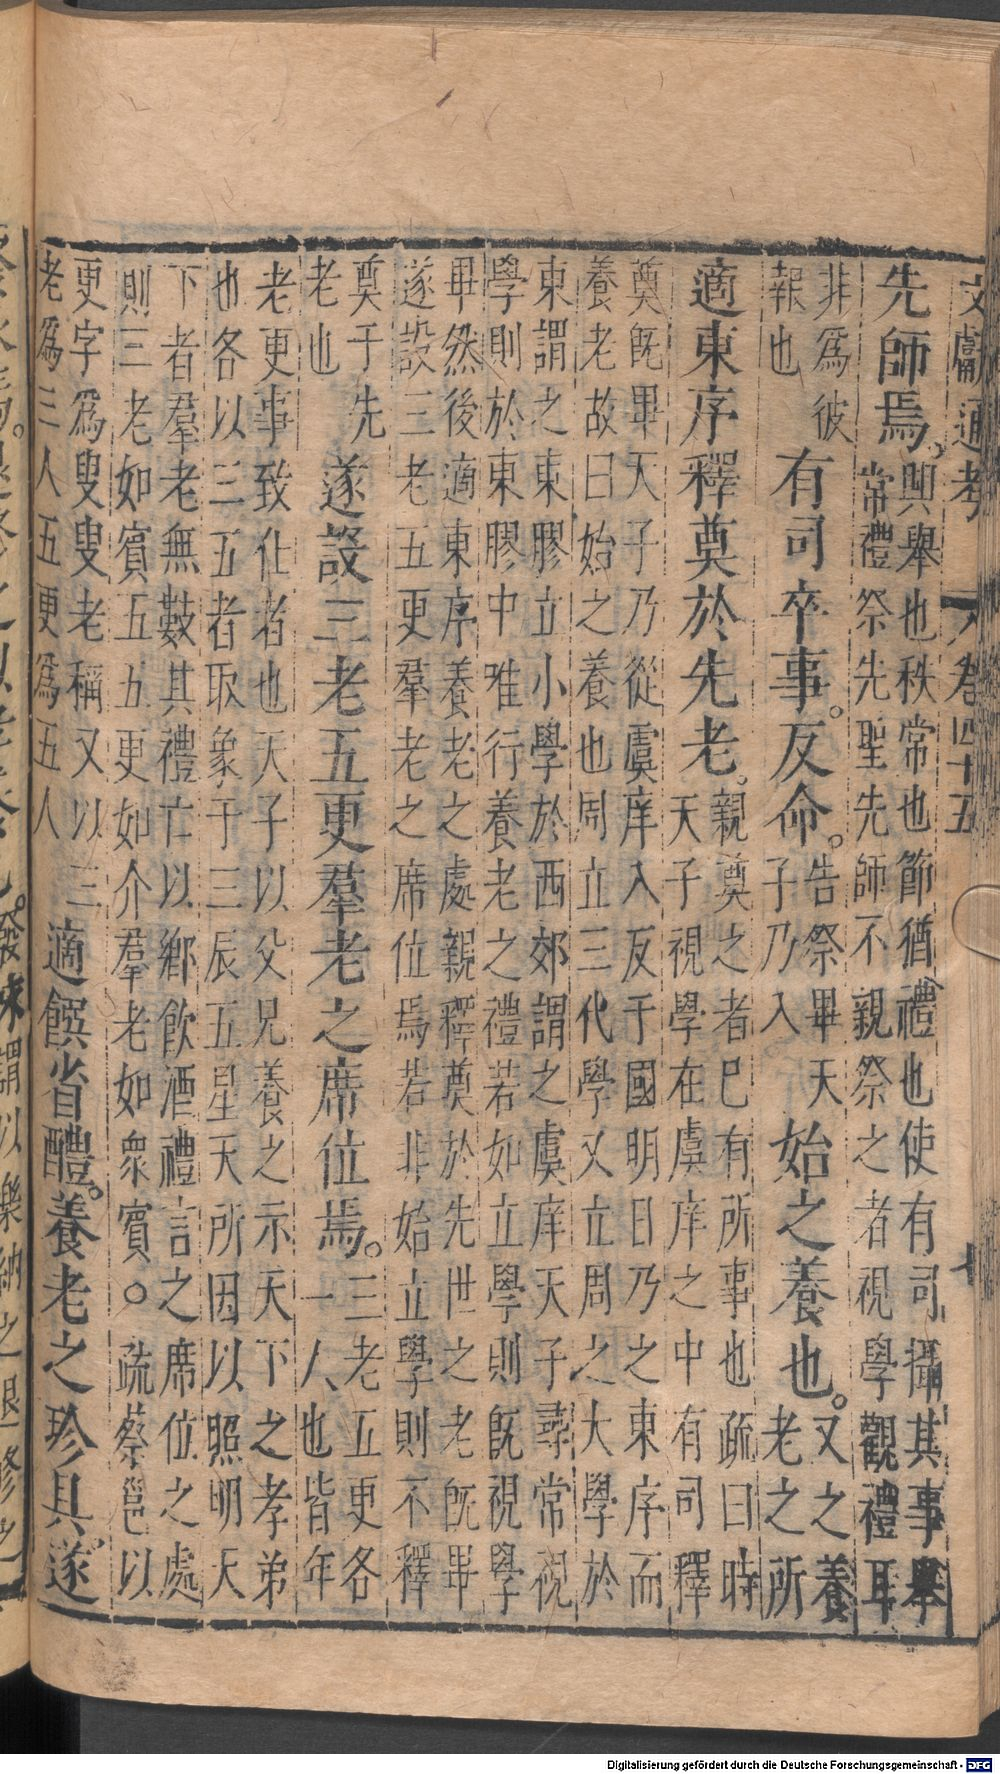 文獻通考 卷四十五
先師焉。興舉也秩常也節猶禮也使有司攝其事舉
常禮祭先聖先師不親祭之者視學觀禮耳
非爲彼
報也
有司卒事。反命。告祭畢天
子乃入
始之養也。又之養
老之所
適東序釋奠於先老。親奠之者已有所事也疏曰時
天子視學在虞庠之中有司釋
奠既畢天子乃從虞庠入反于國明日乃之東序而
養老故曰始之養也周立三代學又立周之大學於
東謂之東膠立小學於西郊謂之虞庠天子尋常視
學則於東膠中唯行養老之禮若如立學則既視學
畢然後適東序養老之處親釋奠於先世之老既畢
遂設三老五更羣老之席位焉若非始立學則不釋
奠于先
老也
遂設三老五更羣老之席位焉。三老五更各
一人也皆年
老更事致仕者也天子以父兄養之示天下之孝弟
也各以三五者取象于三辰五星天所因以照明天
下者羣老無數其禮亡以鄉飲酒禮言之席位之處
則三老如賓五更如介羣老如眾賓○疏蔡邕以
更字爲叟叟老稱又以三
老爲三人五更爲五人
適饌省醴。養老之珍具遂
謂以樂納之退修之
Digitalisierung gefördert durch die Deutsche Forschungsgemeinschaft - DFG